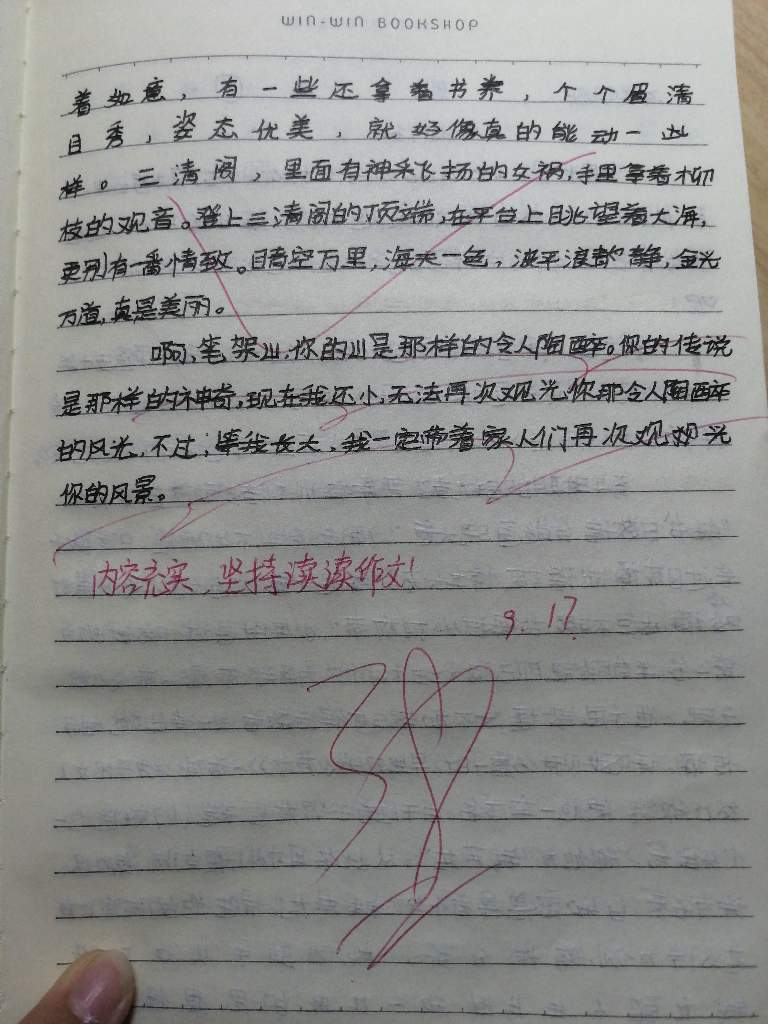 WIN-WIN BOOKSHOP
着如意，有一些还拿着书卷，个个眉清
目秀，姿态优美，就好像真的能动一
样。三清阁，里面有神采飞扬的女祸，手里拿着柳
枝的观音。登上三清阁的顶端，在平台上眺望着大海，
更别有一番情致。晴空万里，海天一色，波平浪静，金光
万道，真是美丽。
啊，笔架山，你的山是那样的令人陶醉。你的传说
是那样的神奇，现在我还小，无法再次观光你那令人陶醉
的风光，不过，等我长大，我一定带着家人们再次观光
你的风景。
内容充实，坚持读读作文！
9.17